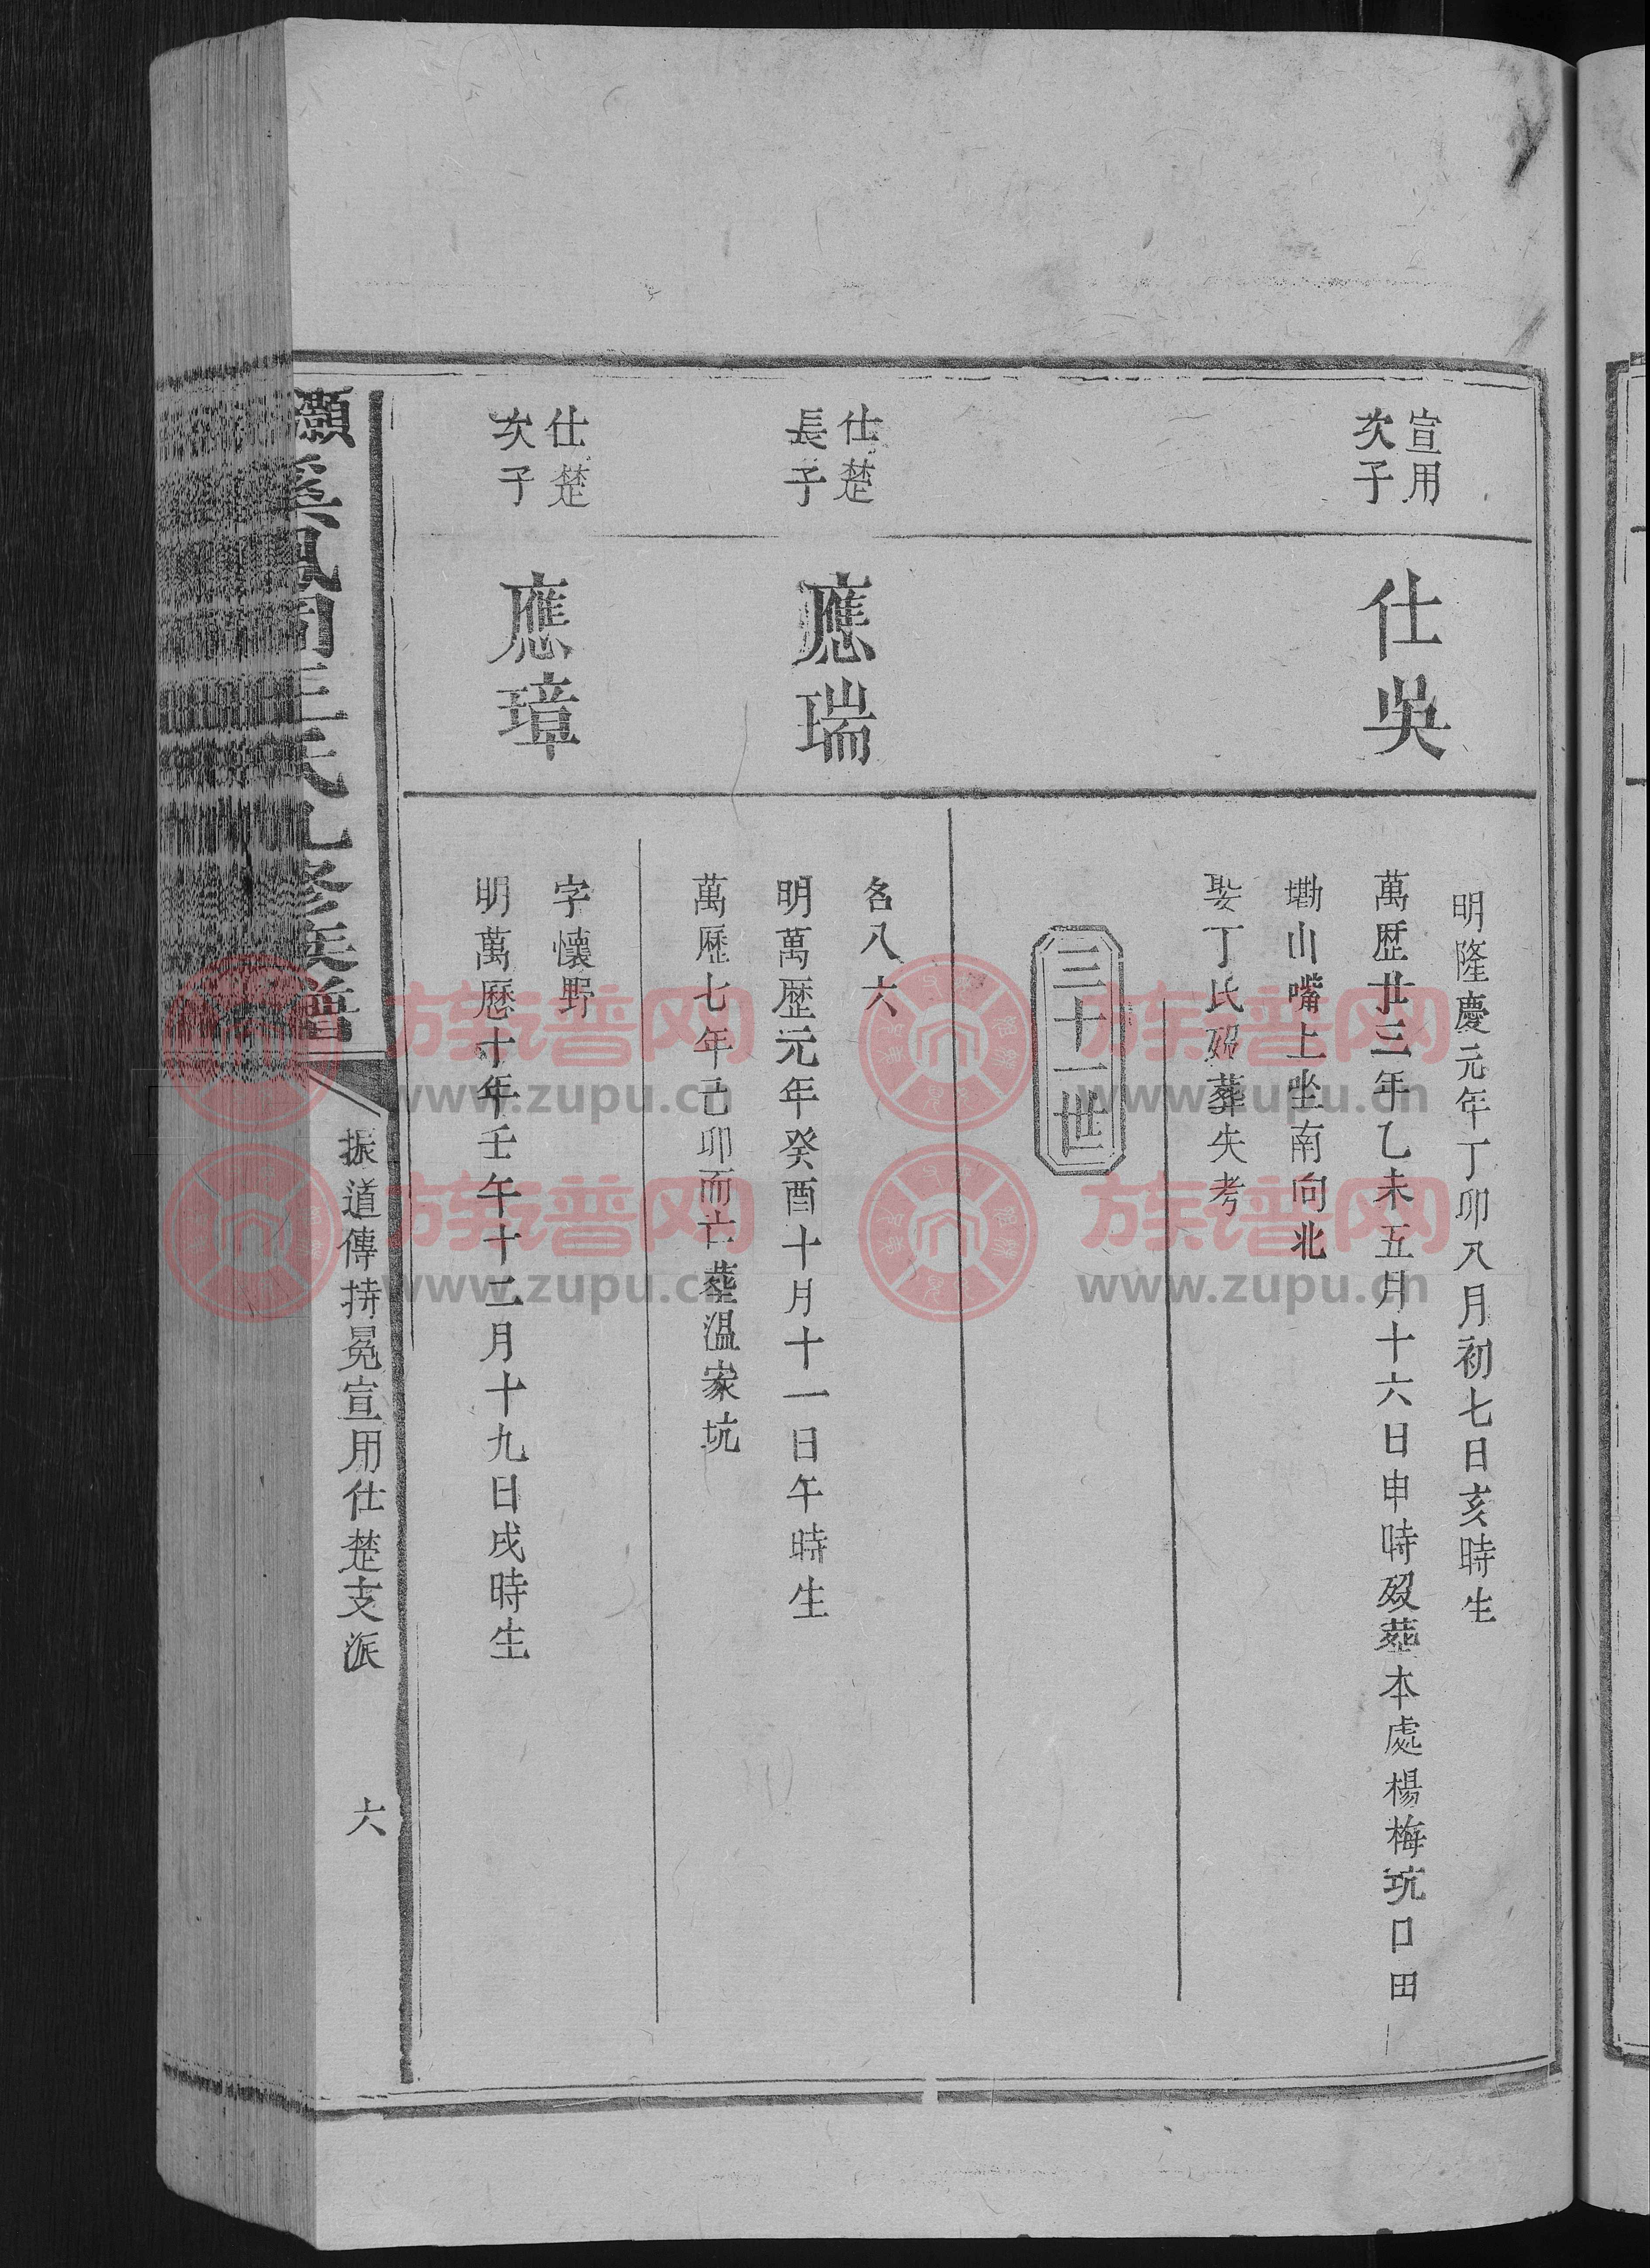 宣用
次子
仕吳
明隆慶元年丁卯八月初七日亥時生
萬歴廿三年乙未五月十六日申時歿塟本處楊梅坑口田
墈山嘴上坐南向北
娶丁氏歿葬失考
三十一世
仕楚
長子
應瑞
名八六
明萬歴元年癸酉十月十一日午時生
萬歷七年己卯而亡塟温家坑
仕楚
次子
應璋
字懷野
明萬歷十年壬午十二月十九日戌時生
灝溪鳳岡王氏九修族譜
振道傳持冕宣用仕楚支派
六
族谱网
www.zupu.cn
族谱网
www.zupu.cn
族谱网
www.zupu.cn
族谱网
www.zupu.cn